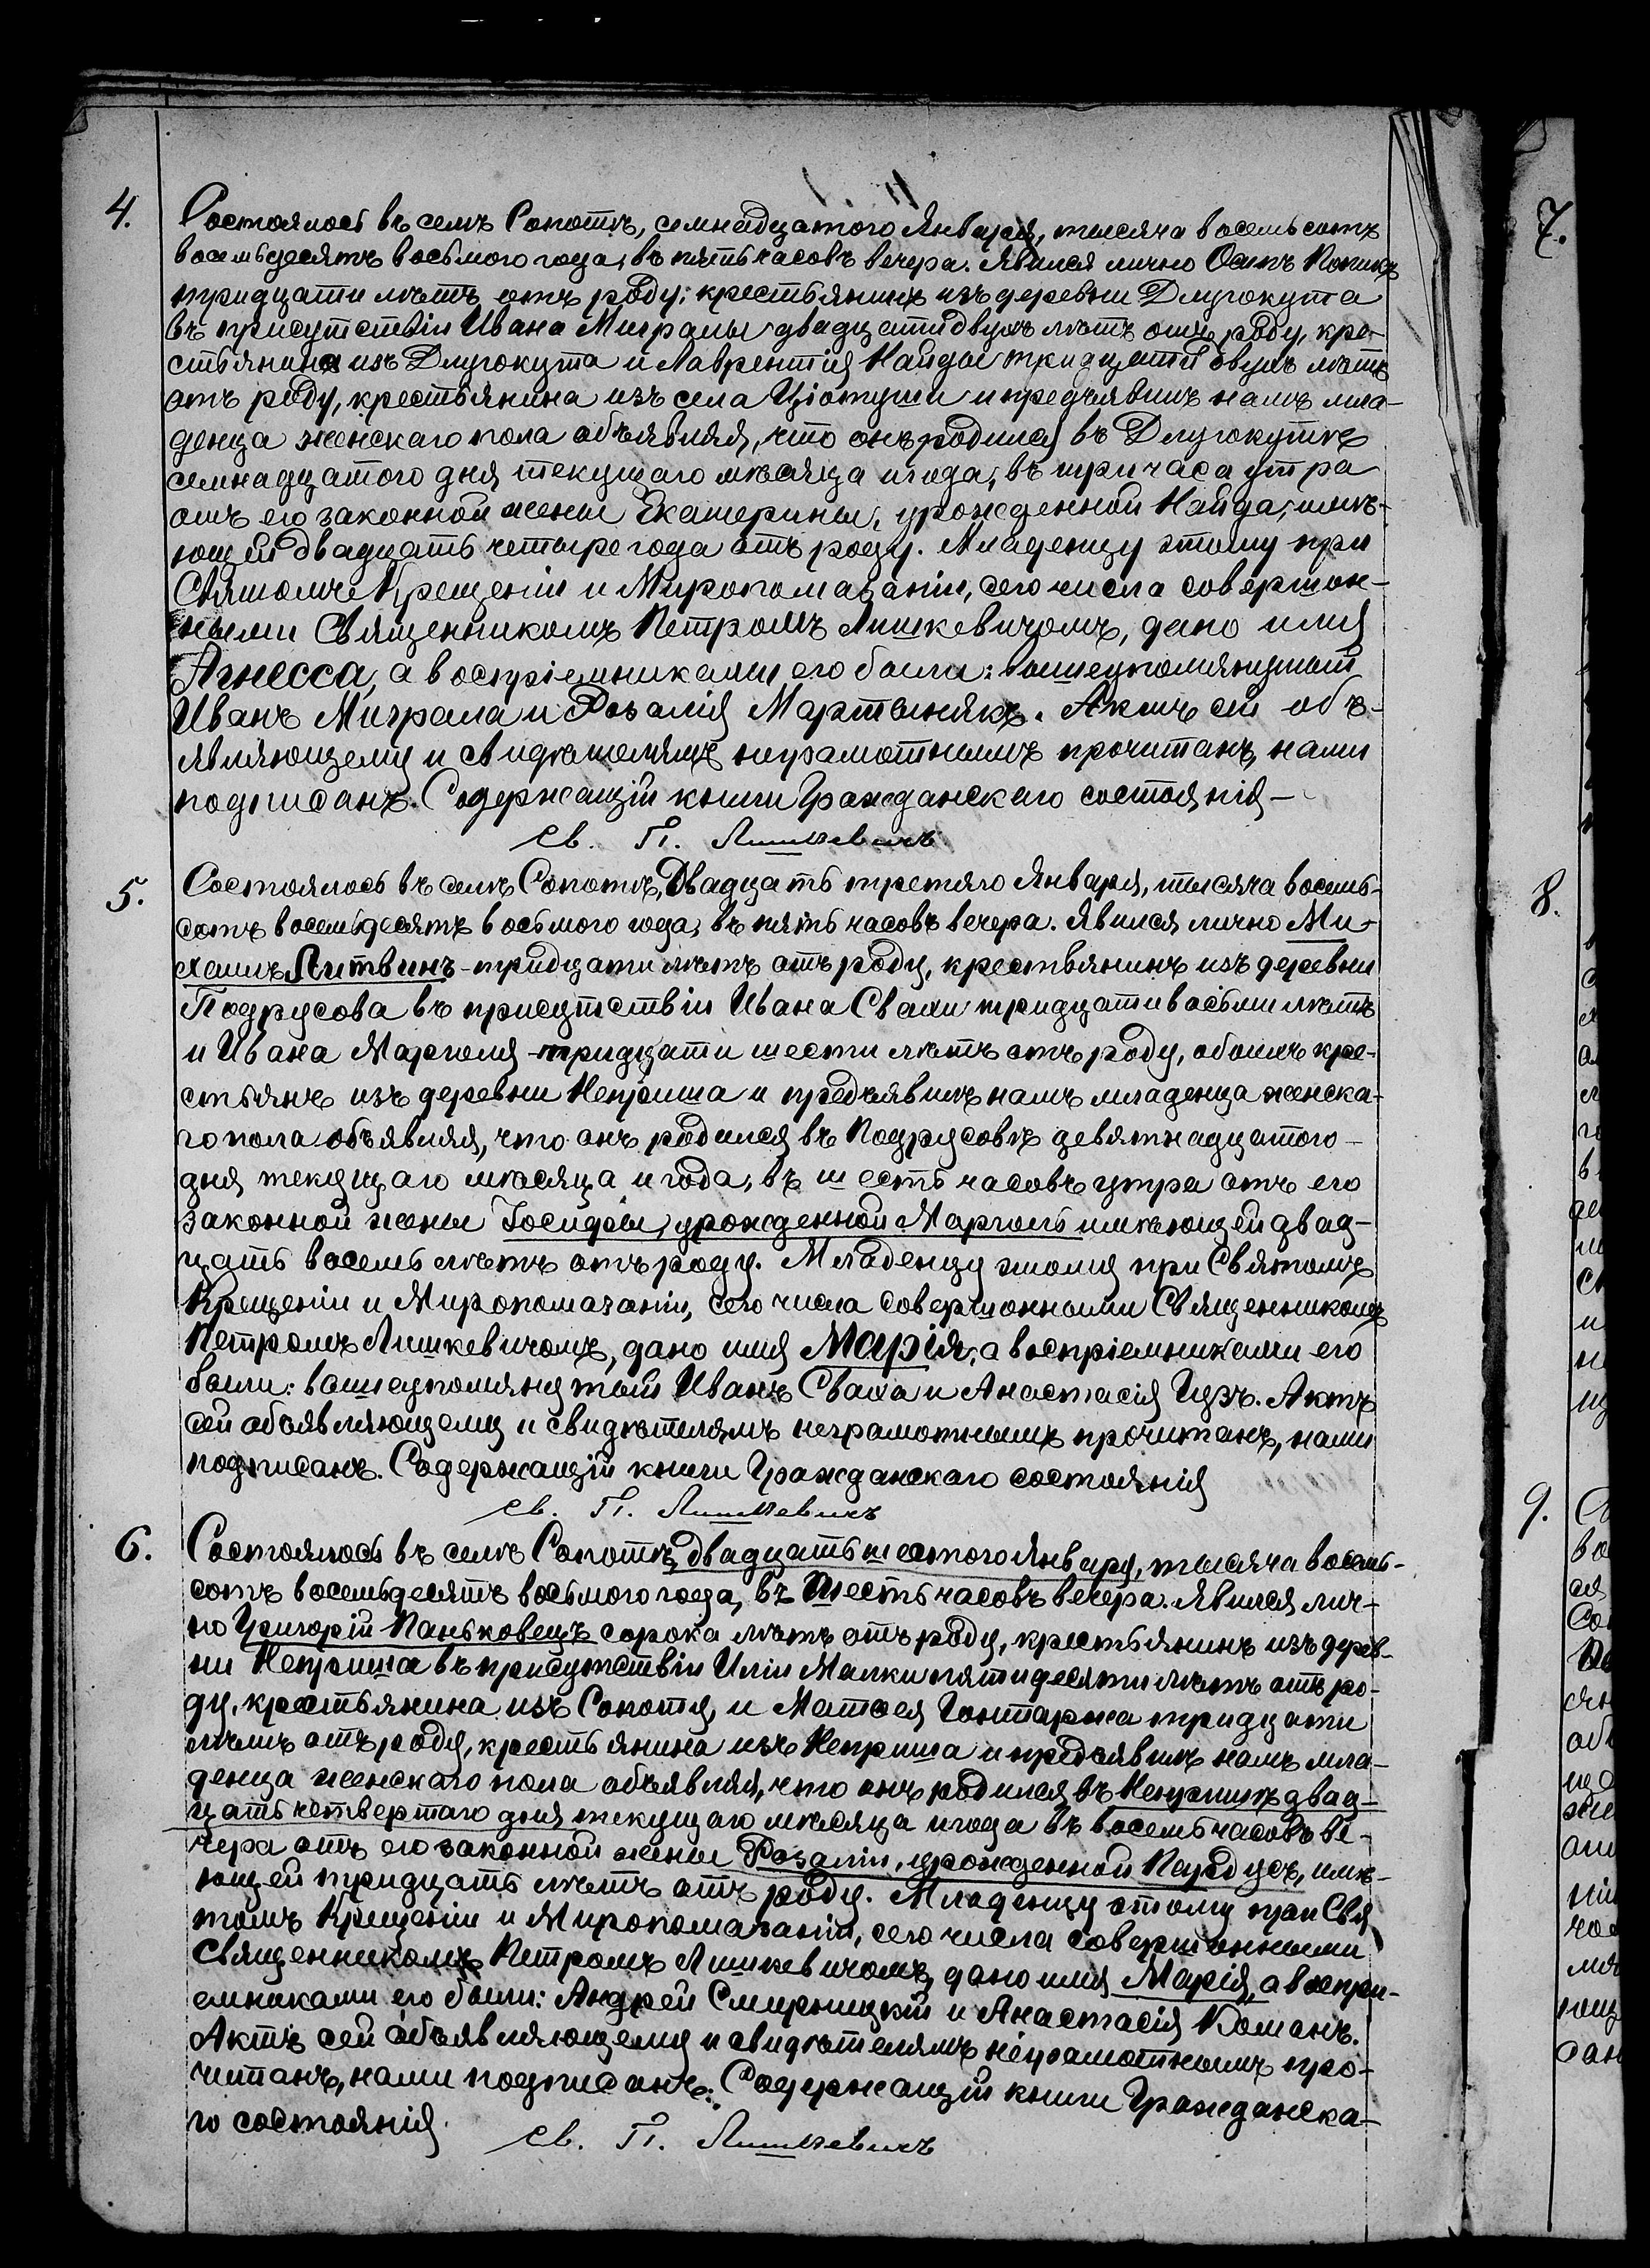 4.
Состоялось въ селѣ Сопотѣ, семнадцатого Января, тысяча восемьсотъ
восемьдесятъ восьмого года, въ пять часовъ вечера. Явился лично Осипъ Копикъ
тридцати лѣтъ отъ роду, крестьянинъ изъ деревни Длугокута
въ присутствіи Ивана Миграмы двадцати двухъ лѣтъ отъ роду, кре-
стьянина изъ Длугокута и Лаврентія Найды тридцати двухъ лѣтъ
отъ роду, крестьянина изъ села Ціотуши и предъявилъ намъ мла-
денца женскаго пола объявляя, что онъ родился въ Длугокутѣ
семнадцатого дня текущаго мѣсяца и года, въ три часа утра
отъ его законной жены Екатерины, урожденной Найда, имѣ-
ющей двадцать четыре года отъ роду. Младенцу этому при
Святомъ Крещеніи и Миропомазаніи, сего числа совершон-
ными Священникомъ Петромъ Лишкевичомъ, дано имя
Агнесса, а воспріемниками его были: вышеупомянутый
Иванъ Миграла и Розалія Мартынякъ. Актъ сей объ-
являющему и свидѣтелямъ неграмотнымъ прочитанъ, нами
подписанъ. Содержащій книги Гражданскаго состоянія –
Св. П. Лишкевичъ
5.
Состоялось въ селѣ Сопотѣ, Двадцать третяго Января, тысяча восемь-
сотъ восемьдесятъ восьмого года, въ пять часовъ вечера. Явился лично Ми-
хаилъ Литвинъ - тридцати лѣтъ отъ роду, крестьянинъ изъ деревни
Подрусова въ присутствіи Ивана Свахи тридцати восьми лѣтъ
и Ивана Марголя - тридцати шести лѣтъ отъ роду, обоихъ кре-
стьянъ изъ деревни Неприша и предъявилъ намъ младенца женска-
го пола объявляя, что онъ родился въ Подрусовѣ девятнадцатого –
дня текущаго мѣсяца и года, въ шесть часовъ утра отъ его
законной жены Іосифы, урожденной Марголь имѣющей двад-
цать восемь лѣтъ отъ роду. Младенцу этому при Святомъ
Крещеніи и Миропомазаніи, сего числа совершонными Священникомъ
Петромъ Лишкевичомъ, дано имя Марія, а воспріемниками его
были: вышеупомянутый Иванъ Сваха и Анастасія Гузъ. Актъ
сей объявляющему и свидѣтелямъ неграмотнымъ прочитанъ, нами
подписанъ. Содержащій книги Гражданскаго состоянія
Св. П. Лишкевичъ
6.
Состоялось въ селѣ Сопотѣ, двадцать шестого Января, тысяча восемь-
сотъ восемьдесятъ восьмого года, въ шесть часовъ вечера. Явился лич-
но Григорій Паньковецъ сорока лѣтъ отъ роду, крестьянинъ изъ дерев-
ни Неприша въ присутствіи Иліи Малки пятидесяти лѣтъ отъ ро-
ду, крестьянина изъ Сопотя, и Матѳея Гонтаржа тридцати
лѣтъ отъ роду, крестьянина изъ Неприша и предъявилъ намъ мла-
денца женскаго пола объявляя, что онъ родился въ Непришѣ двад-
цать четвертаго дня текущаго мѣсяца и года въ восемь часовъ ве-
чера отъ его законной жены Розаліи, урожденной Парадусъ, имѣ-
ющей тридцать лѣтъ отъ роду. Младенцу этому при Свя
томъ Крещеніи и Миропомазаніи, сего числа совершонными
Священникомъ Петромъ Лишкевичомъ, дано имя Марія, а воспрі-
емниками его были: Андрей Смирницкій и Анастасія Команъ.
Актъ сей объявляющему и свидѣтелямъ неграмотнымъ про-
читанъ, нами подписанъ. Содержащій книги Гражданска-
го состоянія
Св. П. Лишкевичъ
7.
8.
9.